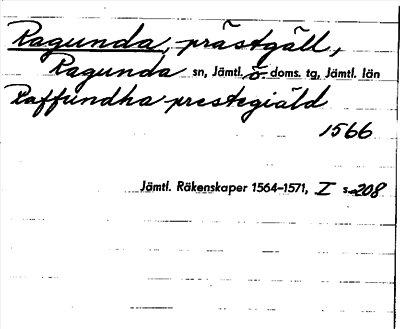 Ragunda, prästgäll,
Ragunda sn, Jämtl. ö. doms. tg, Jämtl. län
Raffundha prestegiäld
1566
Jämtl. Räkenskaper 1564–1571, I s. 208